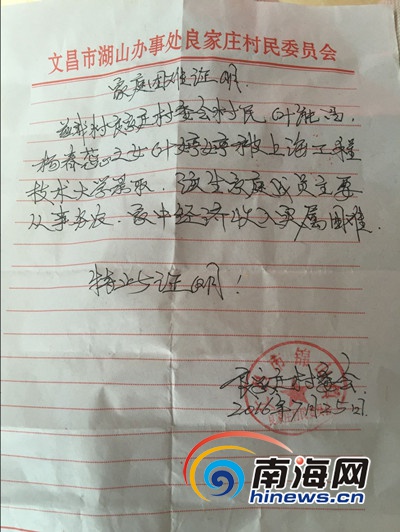 文昌市湖山办事处良家庄村民委员会
家庭困难证明
兹我村良家庄村委会村民叶
杨春蕊之女叶婷婷被上海工程
技术大学录取。该生家庭成员主要
从事务农．家中经济收入实属困难．
特此与证明！
良家庄村委会．
2016年7月25日．
南海网
hinews.cn